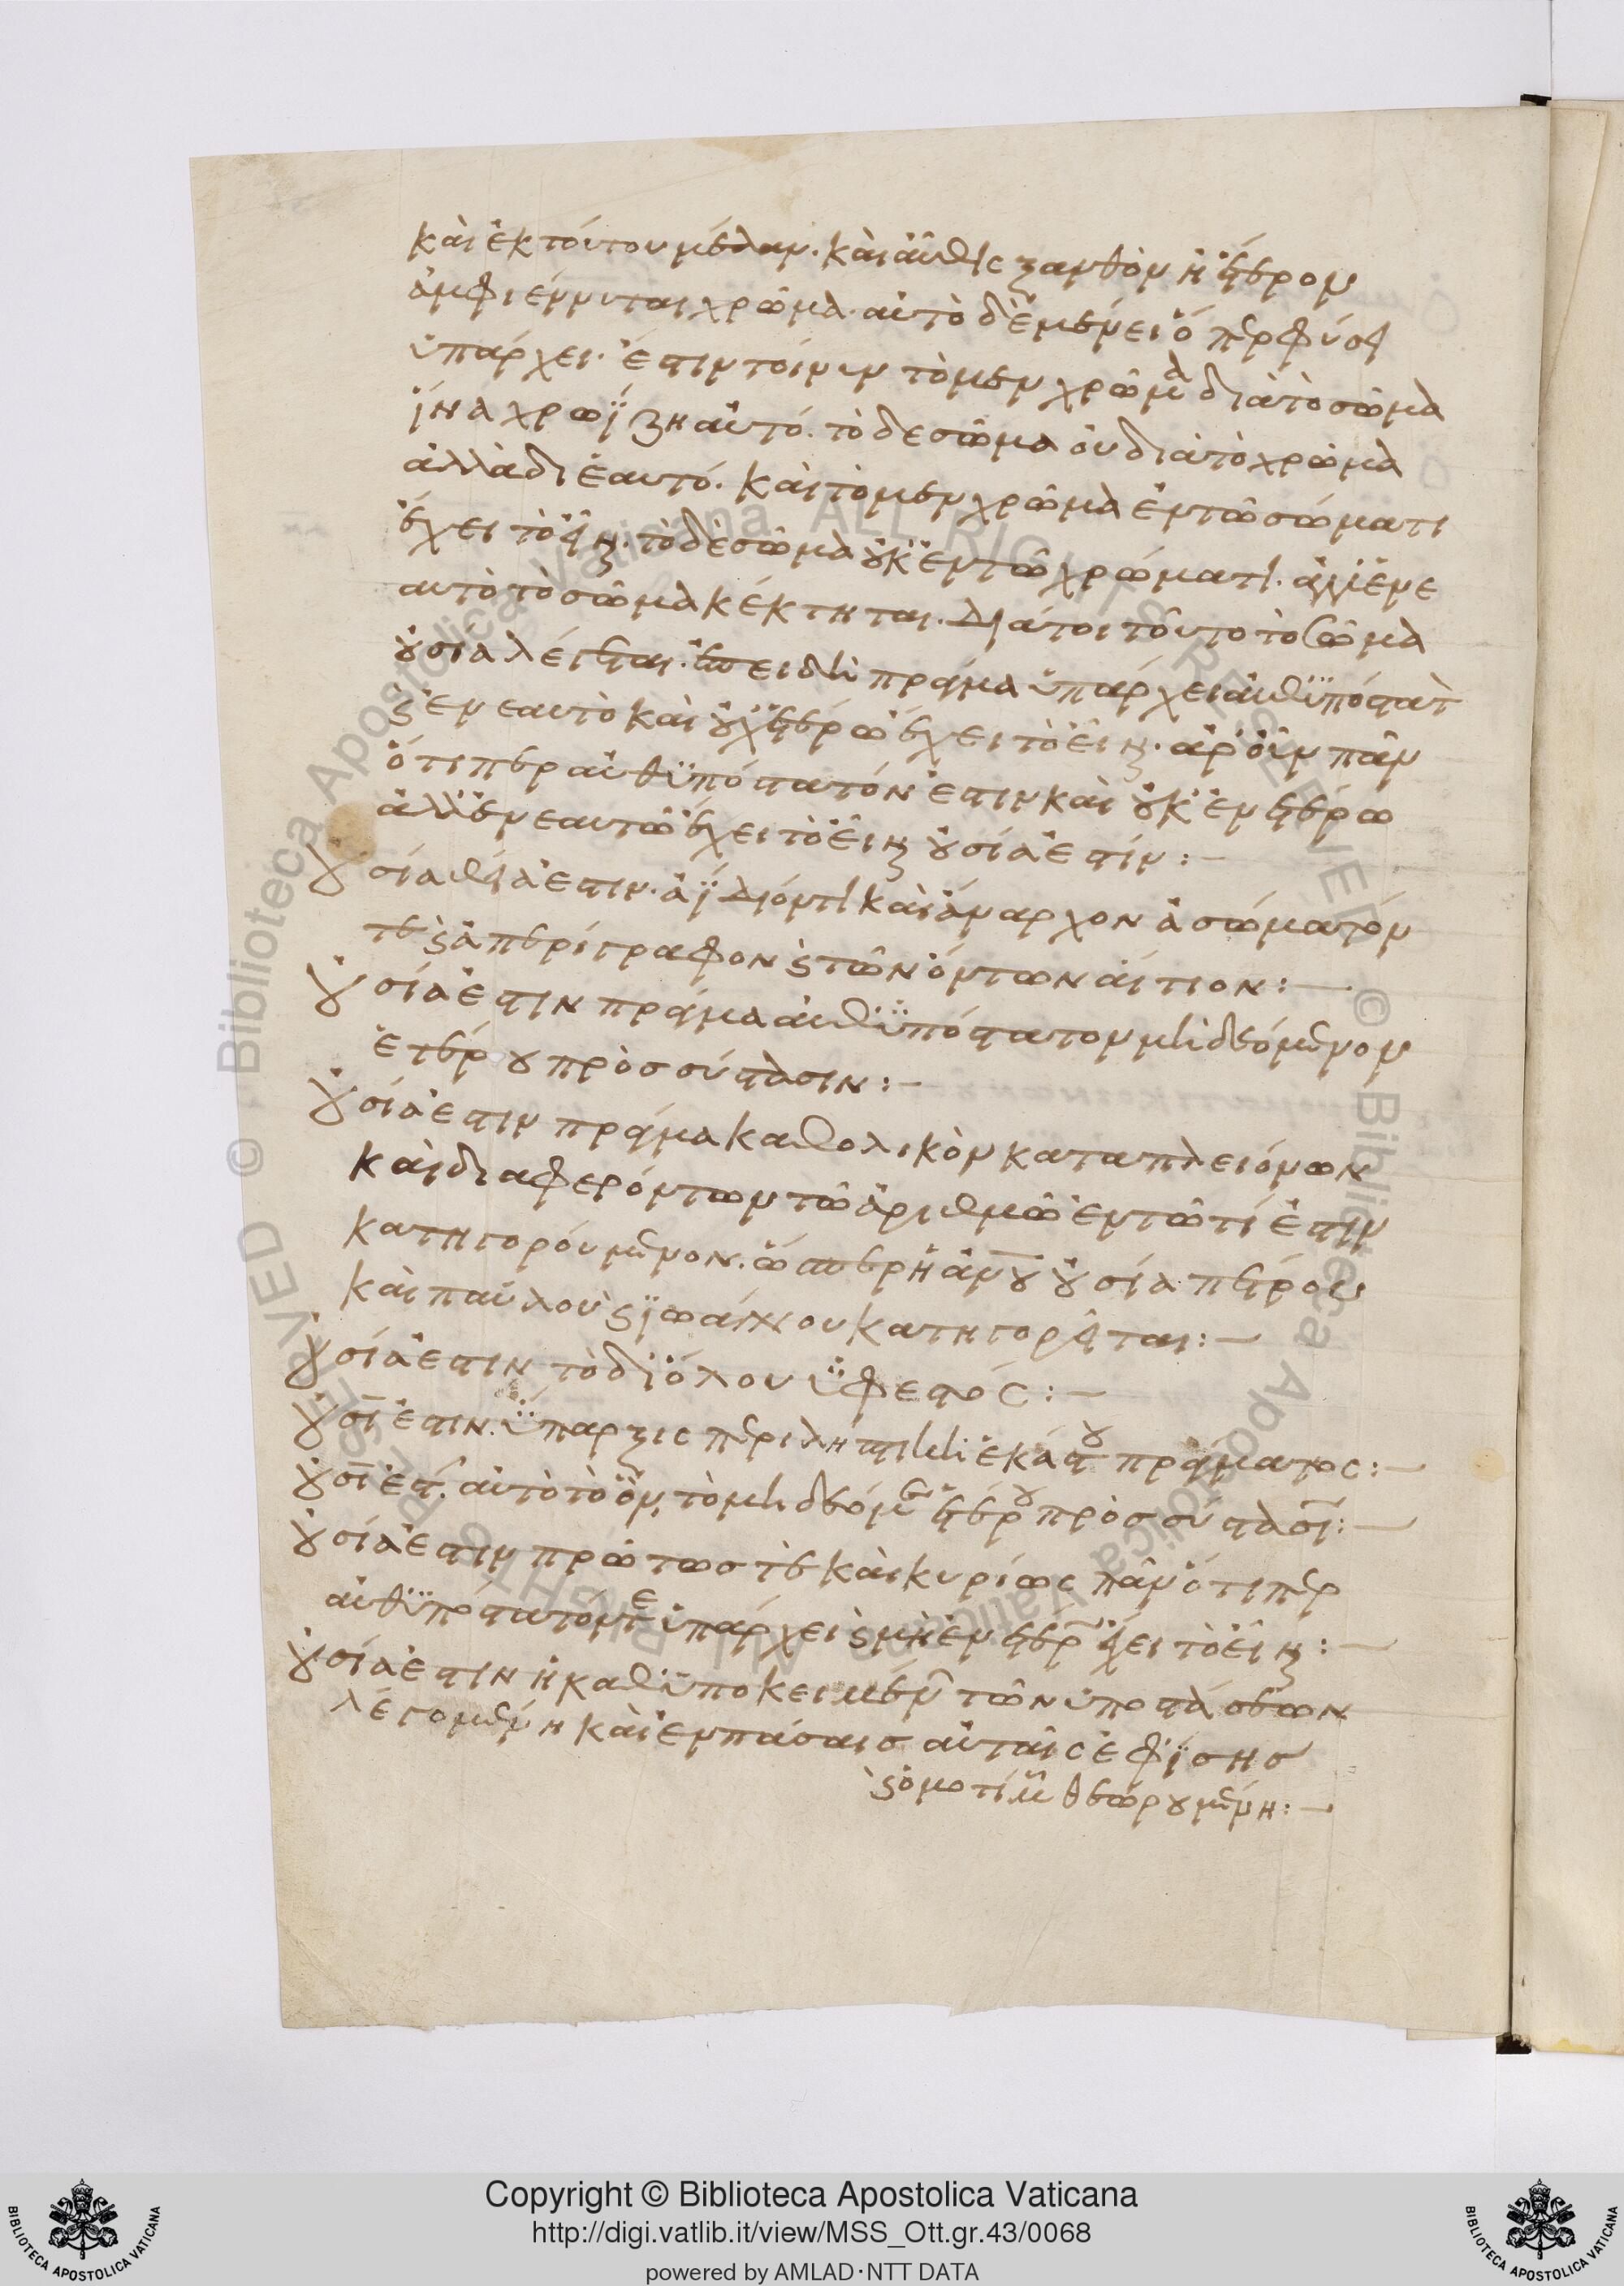 καὶ ἐκ τούτου μέλαν. καὶ αὖθις ξανθὸν ἢ ἕτερον
ἀμφιέννυται χρῶμα. αὐτὸ δὲ μένει ὅπερ φύσει
ὑπάρχει. ἔστιν τοίνυν τὸ μὲν χρῶμα διὰ τὸ σῶμα
ἵνα χρωΐζη αὐτό. τὸ δε σῶμα οὐ διὰ τὸ χρῶμα
ἀλλὰ δι ἑαυτό. καὶ τὸ μὲν χρῶμα ἐν τῶ σώματι
ἔχει τὸ εἶναι. τὸ δὲ σῶμα οὐκ ἐν τῶ χρώματι. ἀλλ ἐν ε
αυτὸ τὸ σῶμα κέκτηται. διάτοι τοῦτο τὸ σῶμα
οὐσία λέγεται. ἐπειδὴ πρᾶγμα ὑπάρχει αὐθϋπόστατ
καὶ ἐν εαυτὸ καὶ οὐχ ἑτέρω ἔχει τὸ εἶναι. ἆρ οὖν πᾶν
ὅτιπερ αὐθϋπόστατόν ἐστιν καὶ οὐκ ἐν ἑτέρω
ἀλλ ἐν εαυτῶ ἔχει τὸ εἶναι οὐσία ἐστίν:-
οὐσία θεία ἐστιν. ἀΐδιόν τι καὶ ἄναρχον ἀσώματόν
τε καὶ ἀπερίγραφον καὶ τῶν ὄντων αἴτιον:-
οὐσία ἐστιν πρᾶγμα αὐθϋπόστατον μὴ δεόμενον
ἑτέρου πρὸς σύστασιν:-
οὐσία ἐστιν πρᾶγμα καθολικὸν κατα πλειόνων
καὶ διαφερόντων τῶ ἀριθμῶ ἐν τῶ τί ἐστιν
κατηγορούμενον. ὥσπερ ἡ ἀνου οὐσία πέτρου
καὶ παύλου καὶ ϊωάννου κατηγορεῖται:-
οὐσία ἐστιν τὸ δι ὅλου ὑφεστός:-
οὐσι ἐστιν. ὕπαρξις περιληπτικὴ ἑκάστου πράγματος:-
οὐσι ἐστ. αὐτὸ τὸ ὂν, τὸ μὴ δεόμενον ἑτέρου πρὸς σύστασι:-
οὐσία ἐστιν πρώτως τὲ καὶ κυρίως πᾶν ὅτιπερ
αὐθϋπόστατόν τε ὑπάρχει καὶ μὴ ἐν ἑτέρ ἔχει τὸ εἶναι:-
οὐσία ἐστιν ἡ καθ ὑποκειμέν τῶν ὑποστάσεων
λεγομένη καὶ ἐν πάσαις αὐταῖς ἐφ ΐσης
καὶ ὁμοτίμ θεωρουμένη:-
Copyright © Biblioteca Apostolica Vaticana
http://digi.vatlib.it/view/MSS_Ott.gr.43/0068
powered by AMLAD·NTT DATA